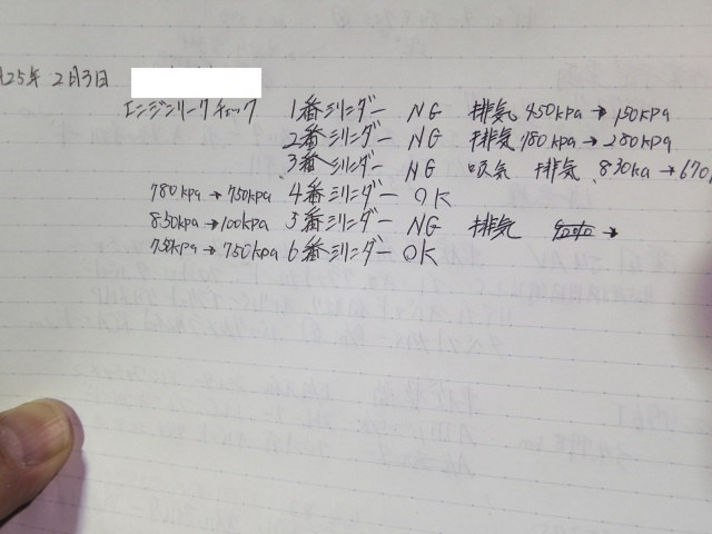 25年 2月3日
エンジンリークチェック 1番シリンダー NG 排気 450kpa→150kpa
2番シリンダー NG 排気 780kpa→280kpa
3番シリンダー NG 吸気 排気 830ka→670
780kpa→750kpa 4番シリンダー OK
850kpa→100kpa 5番シリンダー NG 排気 →
→750kpa 6番シリンダー OK